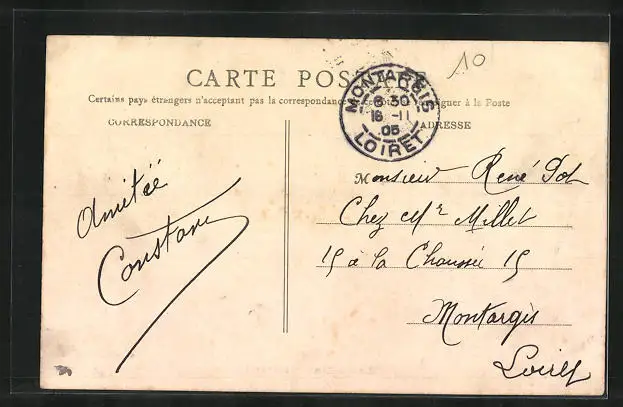 10
CARTE POSTALE
Certains pays étrangers n'acceptant pas la correspondance
à la Poste
CORRESPONDANCE
ADRESSE
MONTARGIS
6 30
16 -11
05
LOIRET
Amitiée
Constant
Monsieur René Dol
Chez Mr Millet
15 à la Chaussée 15
Montargis
Loiret